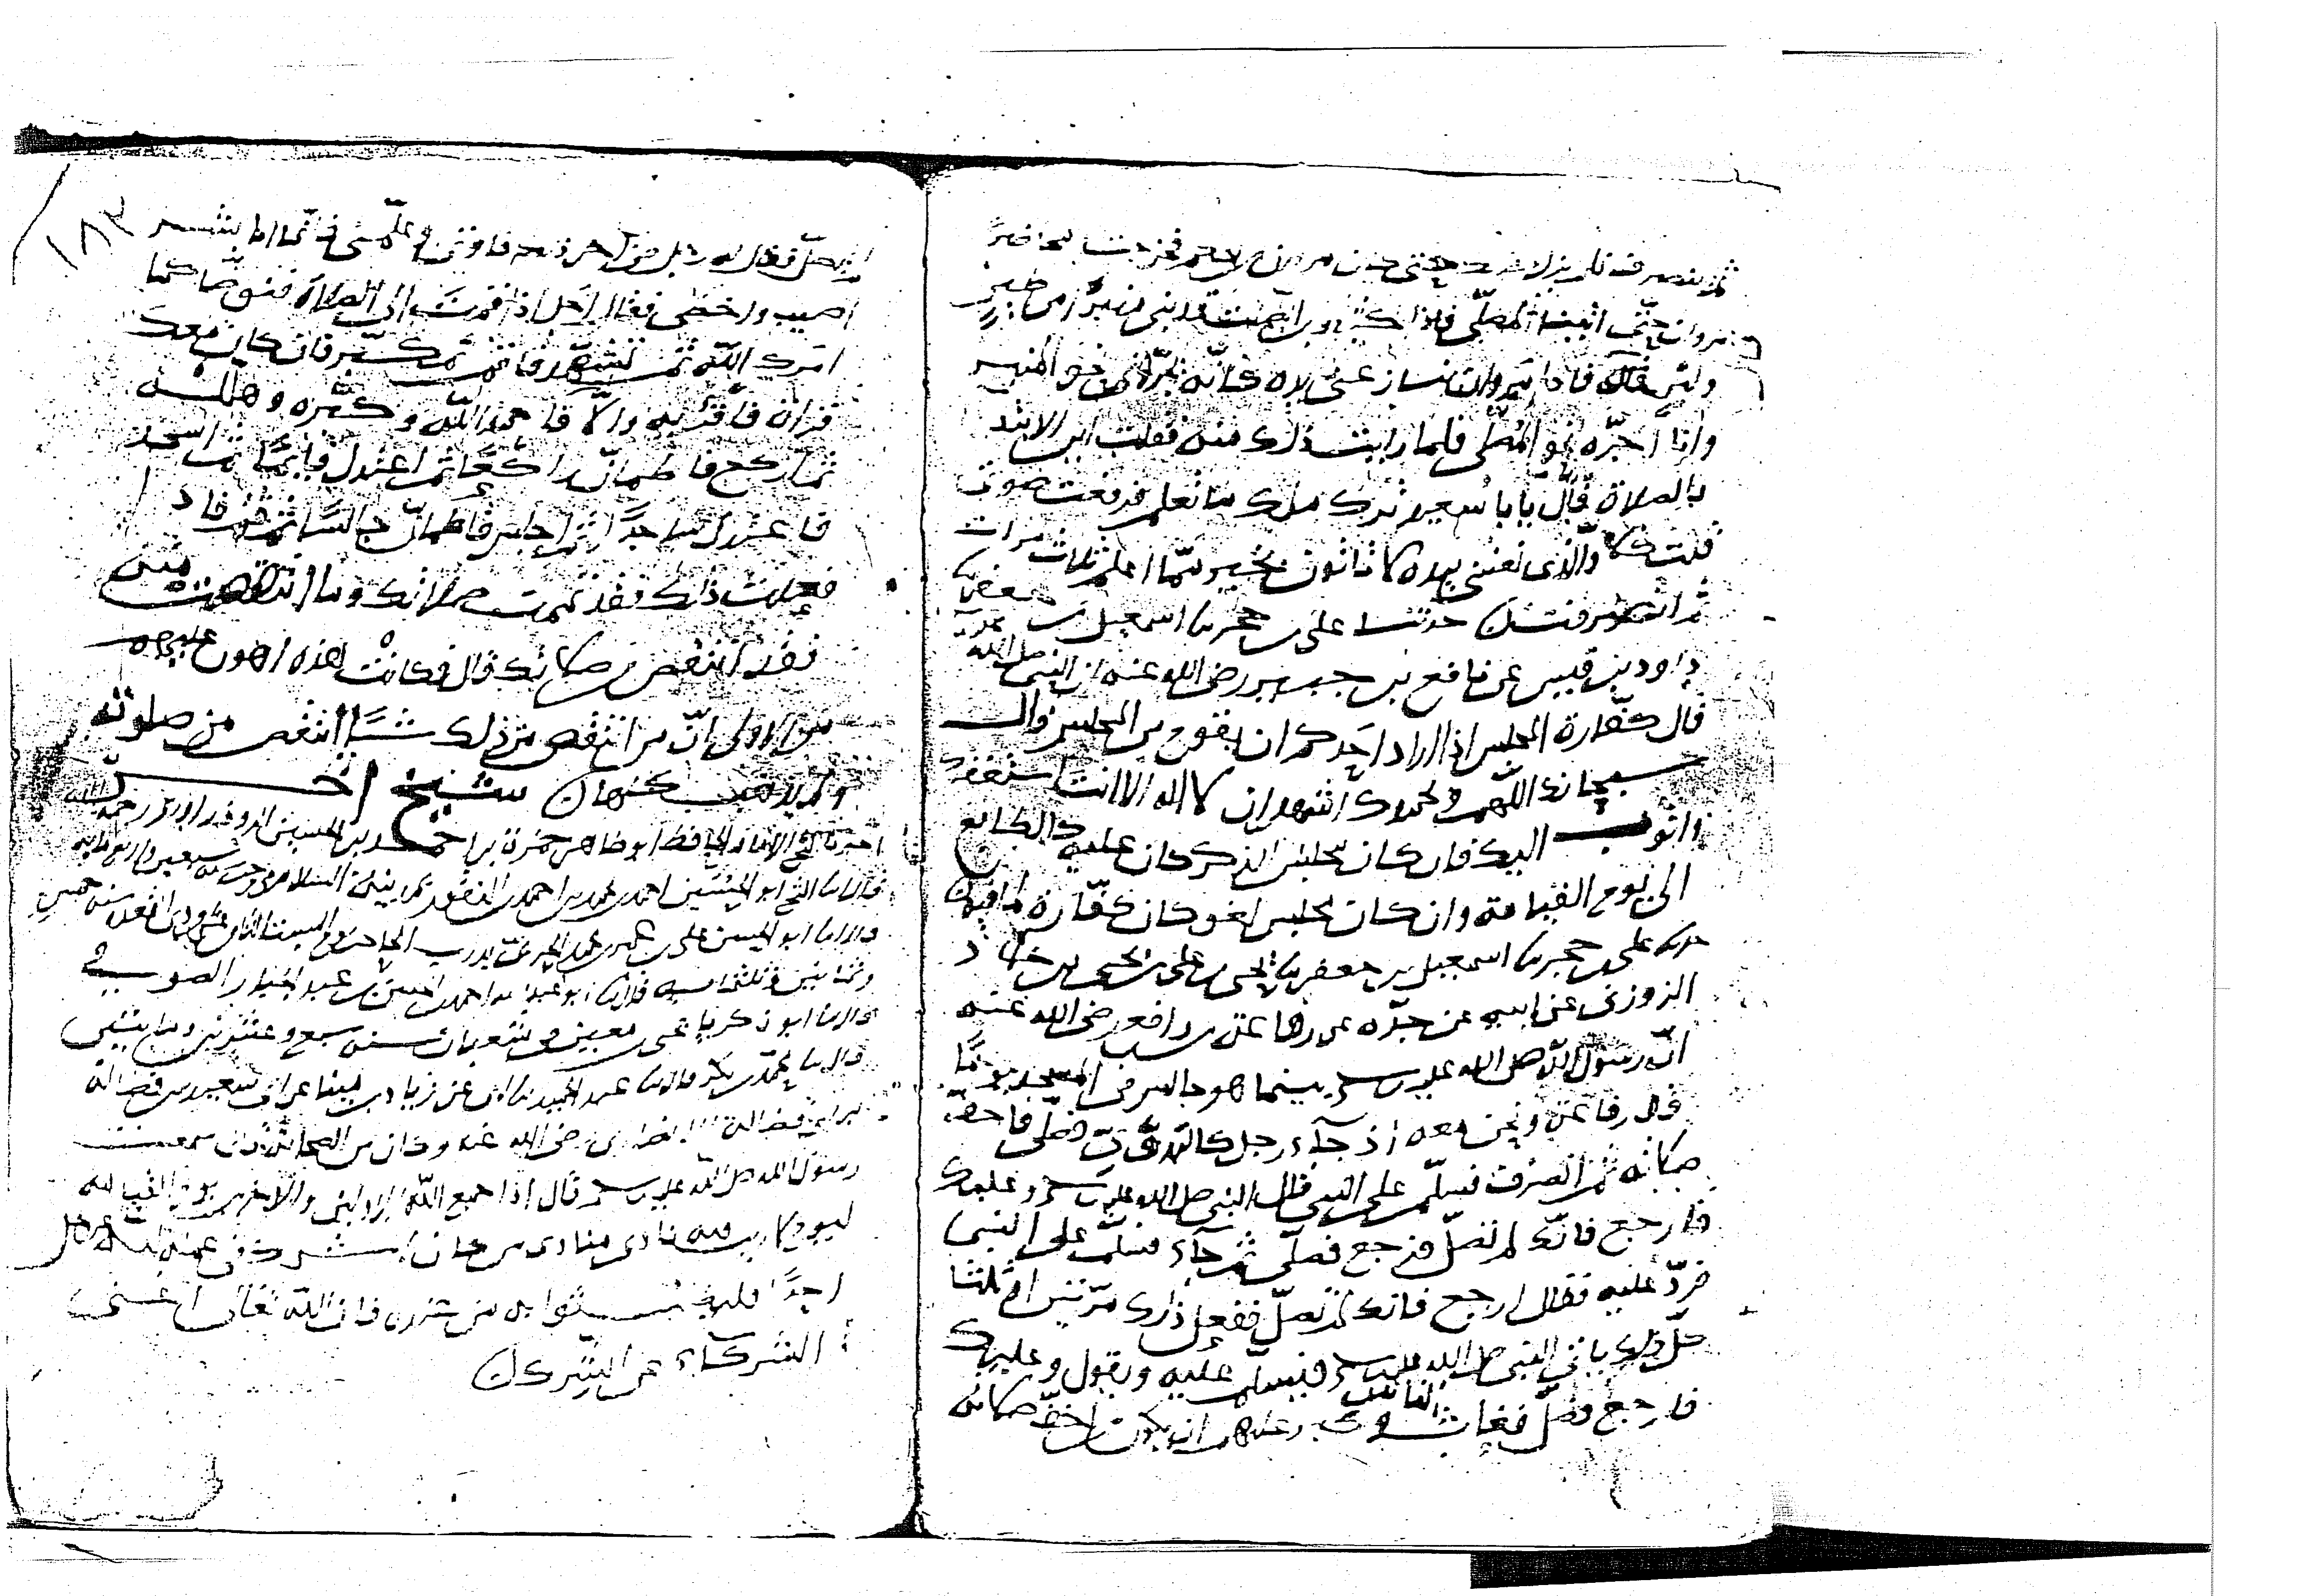 ثم ينصرف فلم يزل حتى كان مروان بن الحكم فخرجت مخاصرا
مروان حتى اتينا المصلى فاذا كثير بن الصلت قد بنى منبرا من طين
ولبن قال فاذا مروان ينازعني يده كانه يجرني نحو المنبر
وانا اجره نحو المصلى فلما رايت ذلك منه فقلت اين الابتدا
بالصلاة قال يابا سعيد ترك ما تعلم فرفعت صوتي
قلت كلا والذي نفسي بيده لا تاتون بخير مما اعلم ثلاث مرات
ثم انصرفت حدثنا على بن حجر نا اسمعيل بن جعفر نا
داود بن قيس عن نافع بن جبير رضى الله عنه ان النبي صلى الله عليه
قال كفارة المجلس اذا اراد احدكم ان يقوم من المجلس قال
سبحانك اللهم وبحمدك اشهد ان لا اله الا انت استغفرك
واتوب اليك فان كان مجلس الذكر كان عليه كالطابع
الى يوم القيامة وان كان مجلس لغو كان كفارة لما فيه
حدثنا على بن حجر نا اسمعيل بن جعفر نا يحيى بن على بن يحيى بن خلاد
الزرقي عن ابيه عن جده عن رفاعة بن رافع رضى الله عنه
ان رسول الله صلى الله عليه وسلم بينما هو جالس في المسجد يوما
قال رفاعة ونحن معه اذ جاء رجل كالبدوي فصلى فاخف
صلاته ثم انصرف فسلم على النبي فقال النبي صلى الله عليه وسلم وعليك
فارجع فانك لم تصل فرجع فصلى ثم جاء فسلم على النبي
فرد عليه فقال ارجع فانك لم تصل ففعل ذلك مرتين او ثلثا
كل ذلك ياتي النبي صلى الله عليه وسلم فيسلم عليه ويقول وعليك
فارجع فصل فعاب الناس وكبر عليهم ان يكون اخف صلاته
١٨٣
لم يصل فقال له رجل في اخر ذلك فارني وعلمني فانما انا بشر
اصيب واخطى فقال اجل اذا قمت الى الصلاة فتوضا كما
امرك الله ثم تشهد فاقم ثم كبر فان كان معك
قران فاقرا به والا فاحمد الله وكبره وهلله
ثم اركع فاطمان راكعا ثم اعتدل قائما ثم اسجد
فاعتدل ساجدا ثم اجلس فاطمان جالسا ثم قم فاذا
فعلت ذلك فقد تمت صلاتك وما انتقصت منى
فقد انتقص من صلاتك قال فكانت هذه اهون عليهم
من الاولى ان من انتقص من ذلك شيا انتقص من صلوته
ولم يذهب كلها شيخ اخر
اخبرنا الشيخ الامام الحافظ ابو طاهر حمزة بن احمد بن الحسين الروذراوري رحمه الله
قال انا الشيخ ابو الحسين احمد بن محمد بن احمد بن النقور بمدينة السلام
قال انا ابو الحسن على بن عمر بن محمد الحربي
وثمانين وثلثمائة قال نا ابو عبد الله احمد بن الحسن بن عبد الجبار الصوفي
قال نا ابو زكريا يحيى بن معين في شعبان سنة سبع وعشرين ومايتين
قال نا محمد بن بكر قال نا عبد الحميد بن جعفر عن ابيه عن زياد بن مينا عن ابي سعيد بن فضالة
بن ابي فضالة الانصاري رضى الله عنه وكان من الصحابة قال سمعت
رسول الله صلى الله عليه وسلم قال اذا جمع الله الاولين والاخرين يوم القيامة
ليوم لا ريب فيه نادى منادى من كان اشرك في عمله لله عز وجل
احدا فليطلب ثوابه من عنده فان الله تعالى اغنى
الشركاء عن الشرك